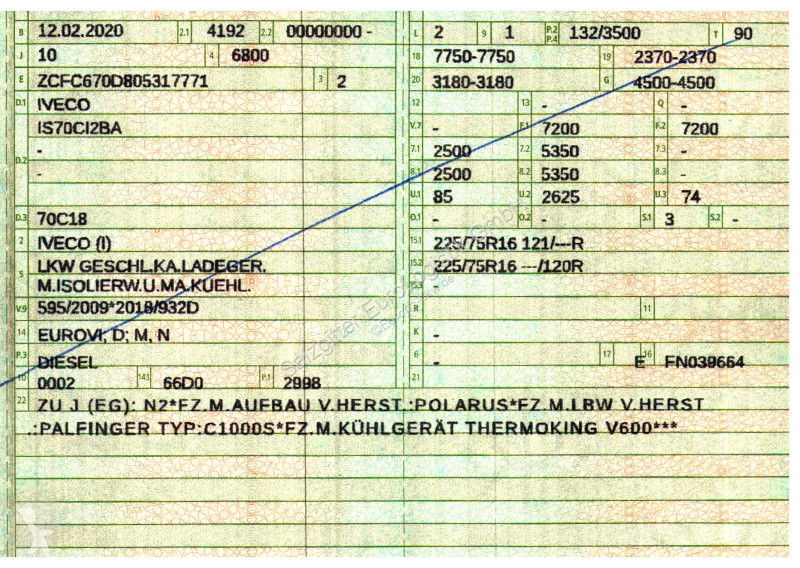 B 12.02.2020 2.1 4192 2.2 00000000 -
J 10 4 6800
E ZCFC670D805317771 3 2
D.1 IVECO
IS70CI2BA
D.2 -
-
D.3 70C18
2 IVECO (I)
5 LKW GESCHL.KA.LADEGER.
M.ISOLIERW.U.MA.KUEHL.
V.9 595/2009*2018/932D
14 EUROVI; D; M, N
P.3 DIESEL
10 0002 14.1 66D0 P.1 2998
L 2 9 1 P.2 P.4 132/3500 T 90
18 7750-7750 19 2370-2370
20 3180-3180 G 4500-4500
12 13 - Q -
V.7 - F.1 7200 F.2 7200
7.1 2500 7.2 5350 7.3 -
8.1 2500 8.2 5350 8.3 -
U.1 85 U.2 2625 U.3 74
O.1 - O.2 - S.1 3 S.2 -
15.1 225/75R16 121/---R
15.2 225/75R16 ---/120R
15.3 -
R 11
K -
6 - 17 E 16 FN039664
21
22 ZU J (EG): N2*FZ.M.AUFBAU V.HERST.:POLARUS*FZ.M.LBW V.HERST
.:PALFINGER TYP:C1000S*FZ.M.KÜHLGERÄT THERMOKING V600***